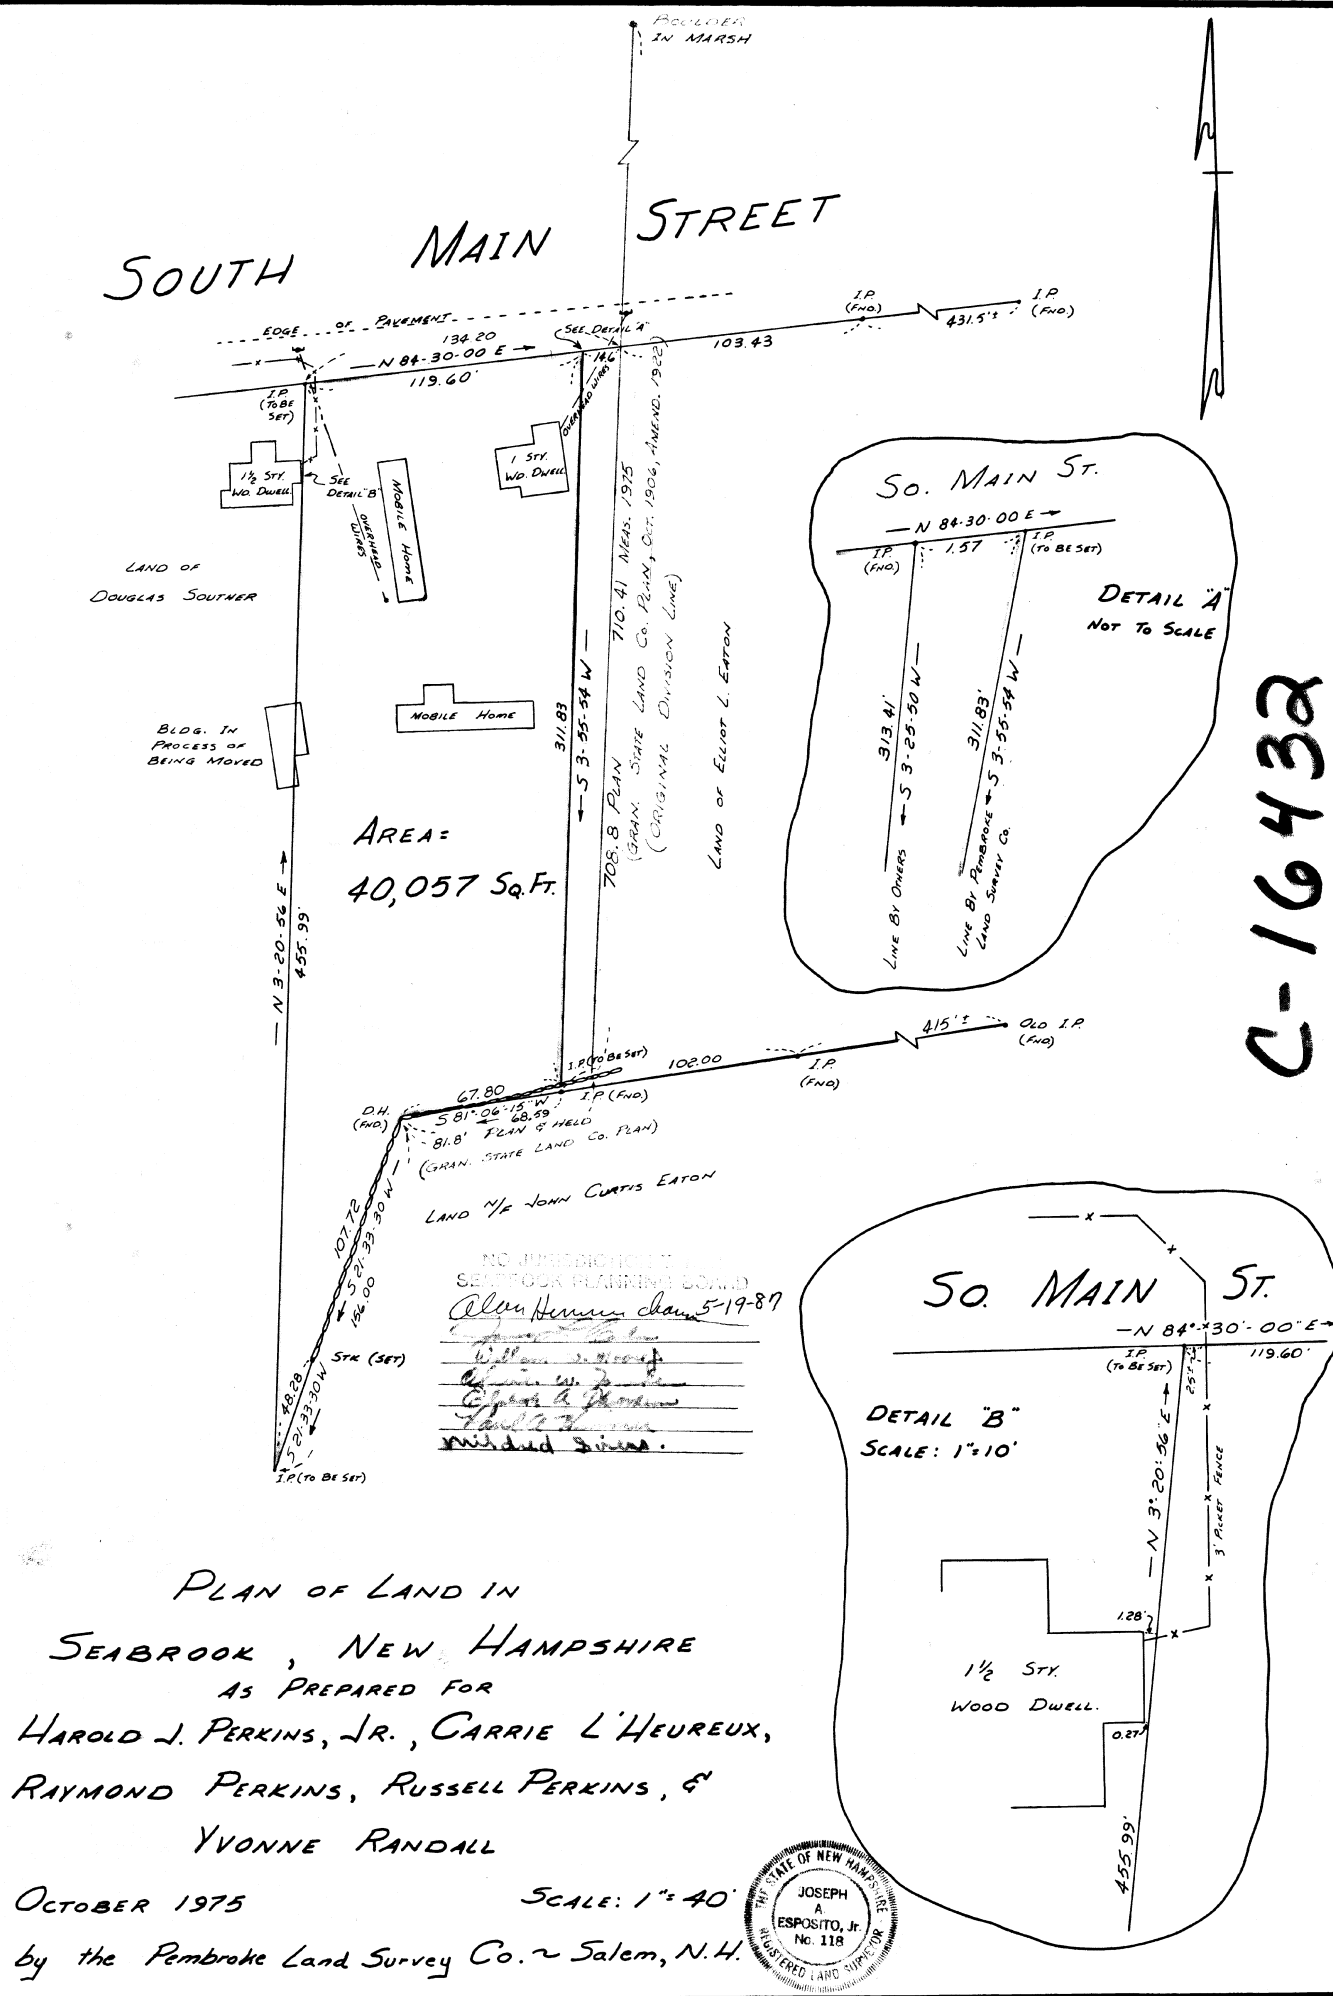 BOULDER
IN MARSH
SOUTH MAIN STREET
EDGE OF PAVEMENT
134.20
N 84-30-00 E
119.60'
SEE DETAIL "A"
14.6
103.43
I.P.
(FND.)
431.5'±
I.P.
(FND.)
I.P.
(TO BE
SET)
OVERHEAD WIRES
1½ STY.
WD. DWELL.
SEE
DETAIL "B"
OVERHEAD
WIRES
MOBILE HOME
1 STY.
WD. DWELL.
LAND OF
DOUGLAS SOUTHER
MOBILE HOME
BLDG. IN
PROCESS OF
BEING MOVED
AREA =
40,057 SQ. FT.
N 3-20-56 E
455.99'
311.83
S 3-55-54 W
708.8 PLAN 710.41 MEAS. 1975
(GRAN. STATE LAND CO. PLAN, OCT. 1906, AMEND. 1922)
(ORIGINAL DIVISION LINE)
LAND OF ELLIOT L. EATON
SO. MAIN ST.
N 84-30-00 E
I.P.
(FND.)
1.57
I.P.
(TO BE SET)
DETAIL "A"
NOT TO SCALE
313.41'
S 3-25-50 W
LINE BY OTHERS
311.83'
S 3-55-54 W
LINE BY PEMBROKE
LAND SURVEY CO.
C-16432
415'±
OLD I.P.
(FND)
I.P. (TO BE SET)
102.00
I.P.
(FND)
67.80
D.H.
(FND.)
S 81°-06'-15" W
68.59
I.P. (FND.)
81.8' PLAN & HELD
(GRAN. STATE LAND CO. PLAN)
LAND N/F JOHN CURTIS EATON
107.72
S 21-33-30 W
156.00
STK (SET)
48.28
S 21-33-30 W
I.P. (TO BE SET)
NO JURISDICTION
SEABROOK PLANNING BOARD
5-19-87
SO. MAIN ST.
N 84°-30'-00" E
I.P.
(TO BE SET)
119.60'
2.5'±
DETAIL "B"
SCALE: 1"=10'
N 3°-20'-56" E
3' PICKET FENCE
1.28'
1½ STY.
WOOD DWELL.
0.27'
455.99'
PLAN OF LAND IN
SEABROOK, NEW HAMPSHIRE
AS PREPARED FOR
HAROLD J. PERKINS, JR., CARRIE L'HEUREUX,
RAYMOND PERKINS, RUSSELL PERKINS, &
YVONNE RANDALL
OCTOBER 1975 SCALE: 1"=40'
by the Pembroke Land Survey Co. ~ Salem, N.H.
THE STATE OF NEW HAMPSHIRE
JOSEPH
A.
ESPOSITO, Jr.
No. 118
REGISTERED LAND SURVEYOR